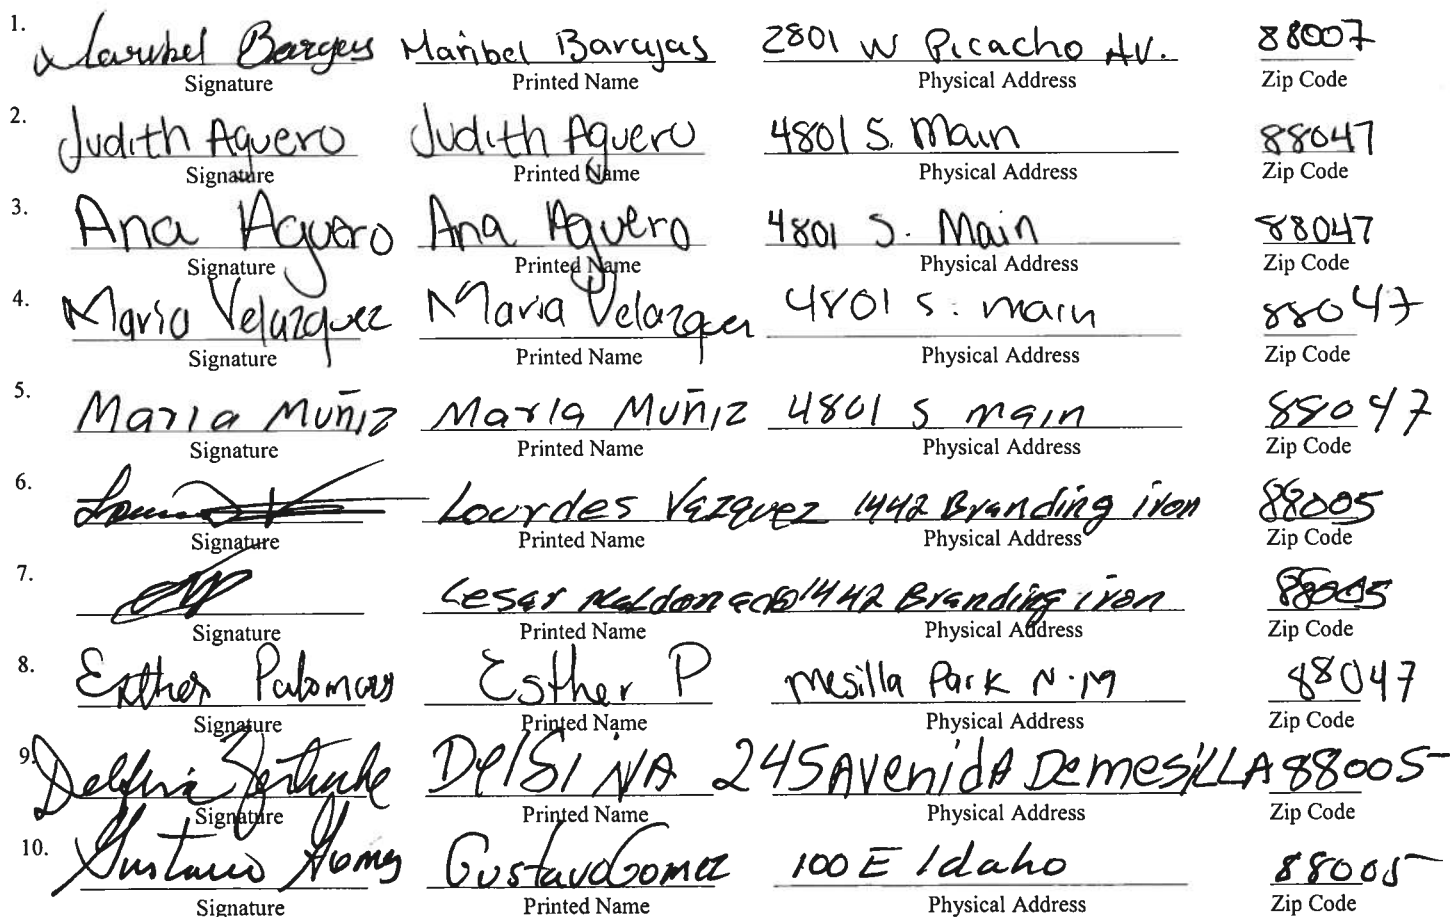 1. Maribel Barajas Maribel Barajas 2801 W Picacho Av. 88007
Signature Printed Name Physical Address Zip Code
2. Judith Aguero Judith Aguero 4801 S. Main 88047
Signature Printed Name Physical Address Zip Code
3. Ana Aguero Ana Aguero 4801 S. Main 88047
Signature Printed Name Physical Address Zip Code
4. Maria Velazquez Maria Velazquez 4801 S. main 88047
Signature Printed Name Physical Address Zip Code
5. Maria Muñiz Maria Muñiz 4801 S main 88047
Signature Printed Name Physical Address Zip Code
6. Lourdes Vazquez 1442 Branding iron 88005
Signature Printed Name Physical Address Zip Code
7. Cesar Maldonado 1442 Branding iron 88005
Signature Printed Name Physical Address Zip Code
8. Esther Palomares Esther P Mesilla Park N.M 88047
Signature Printed Name Physical Address Zip Code
9. Delfina 245 Avenida De mesiLLA 88005
Signature Printed Name Physical Address Zip Code
10. Gustavo Gomez Gustavo Gomez 100 E Idaho 88005
Signature Printed Name Physical Address Zip Code